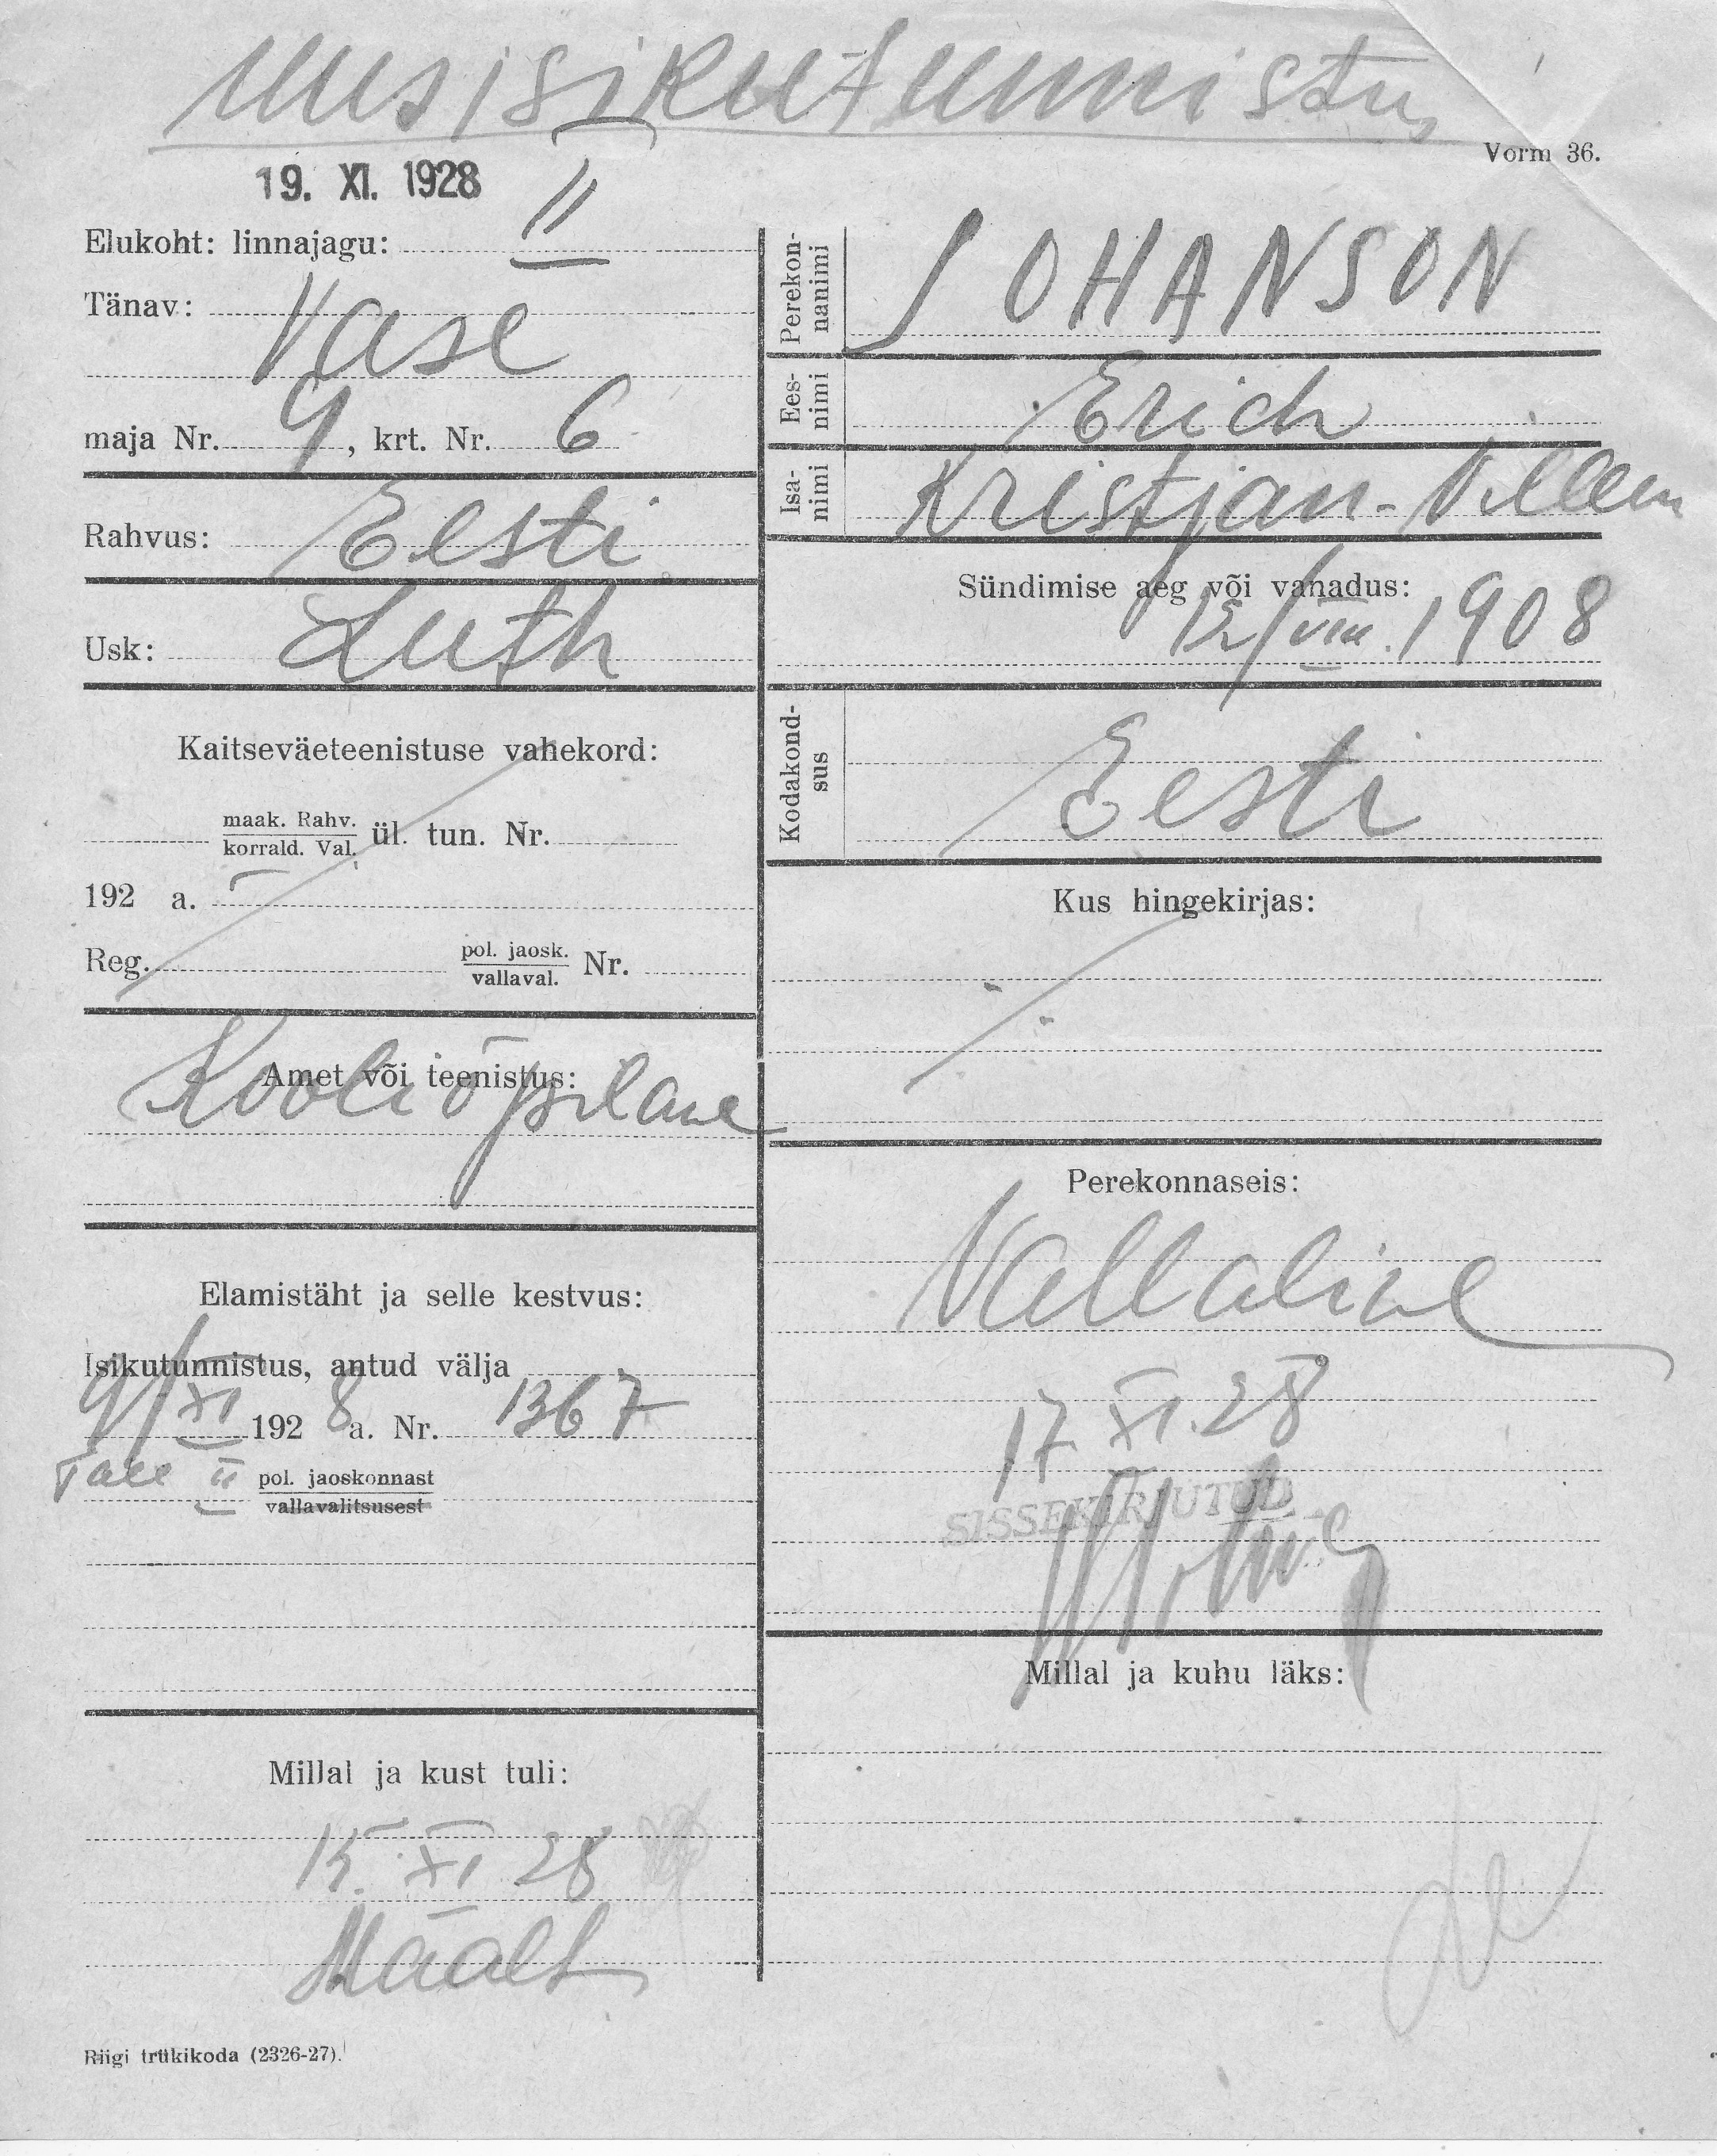 Uus isikutunnistus
Vorm 36.
19. XI. 1928
Elukoht: linnajagu: II
Tänav: Vase
maja Nr. 9, krt. Nr. 6
Rahvus: Eesti
Usk: Luth
Kaitseväeteenistuse vahekord:
maak. Rahv.
korrald. Val. ül. tun. Nr.
192 a.
Reg. pol. jaosk.
vallaval. Nr.
Amet või teenistus:
Kooliõpilane
Elamistäht ja selle kestvus:
Isikutunnistus, antud välja
9/XI 1928 a. Nr. 1367
Tall II pol. jaoskonnast
vallavalitsusest
Millal ja kust tuli:
15. XI 28
Maalt
Riigi trükikoda (2326-27).
Perekon-
nanimi JOHANSON
Ees-
nimi Erich
Isa-
nimi Kristjan-Villem
Sündimise aeg või vanadus:
12/VIII. 1908
Kodakond-
sus Eesti
Kus hingekirjas:
Perekonnaseis:
Vallaline
17. XI. 28
SISSEKIRJUTUD
Millal ja kuhu läks: